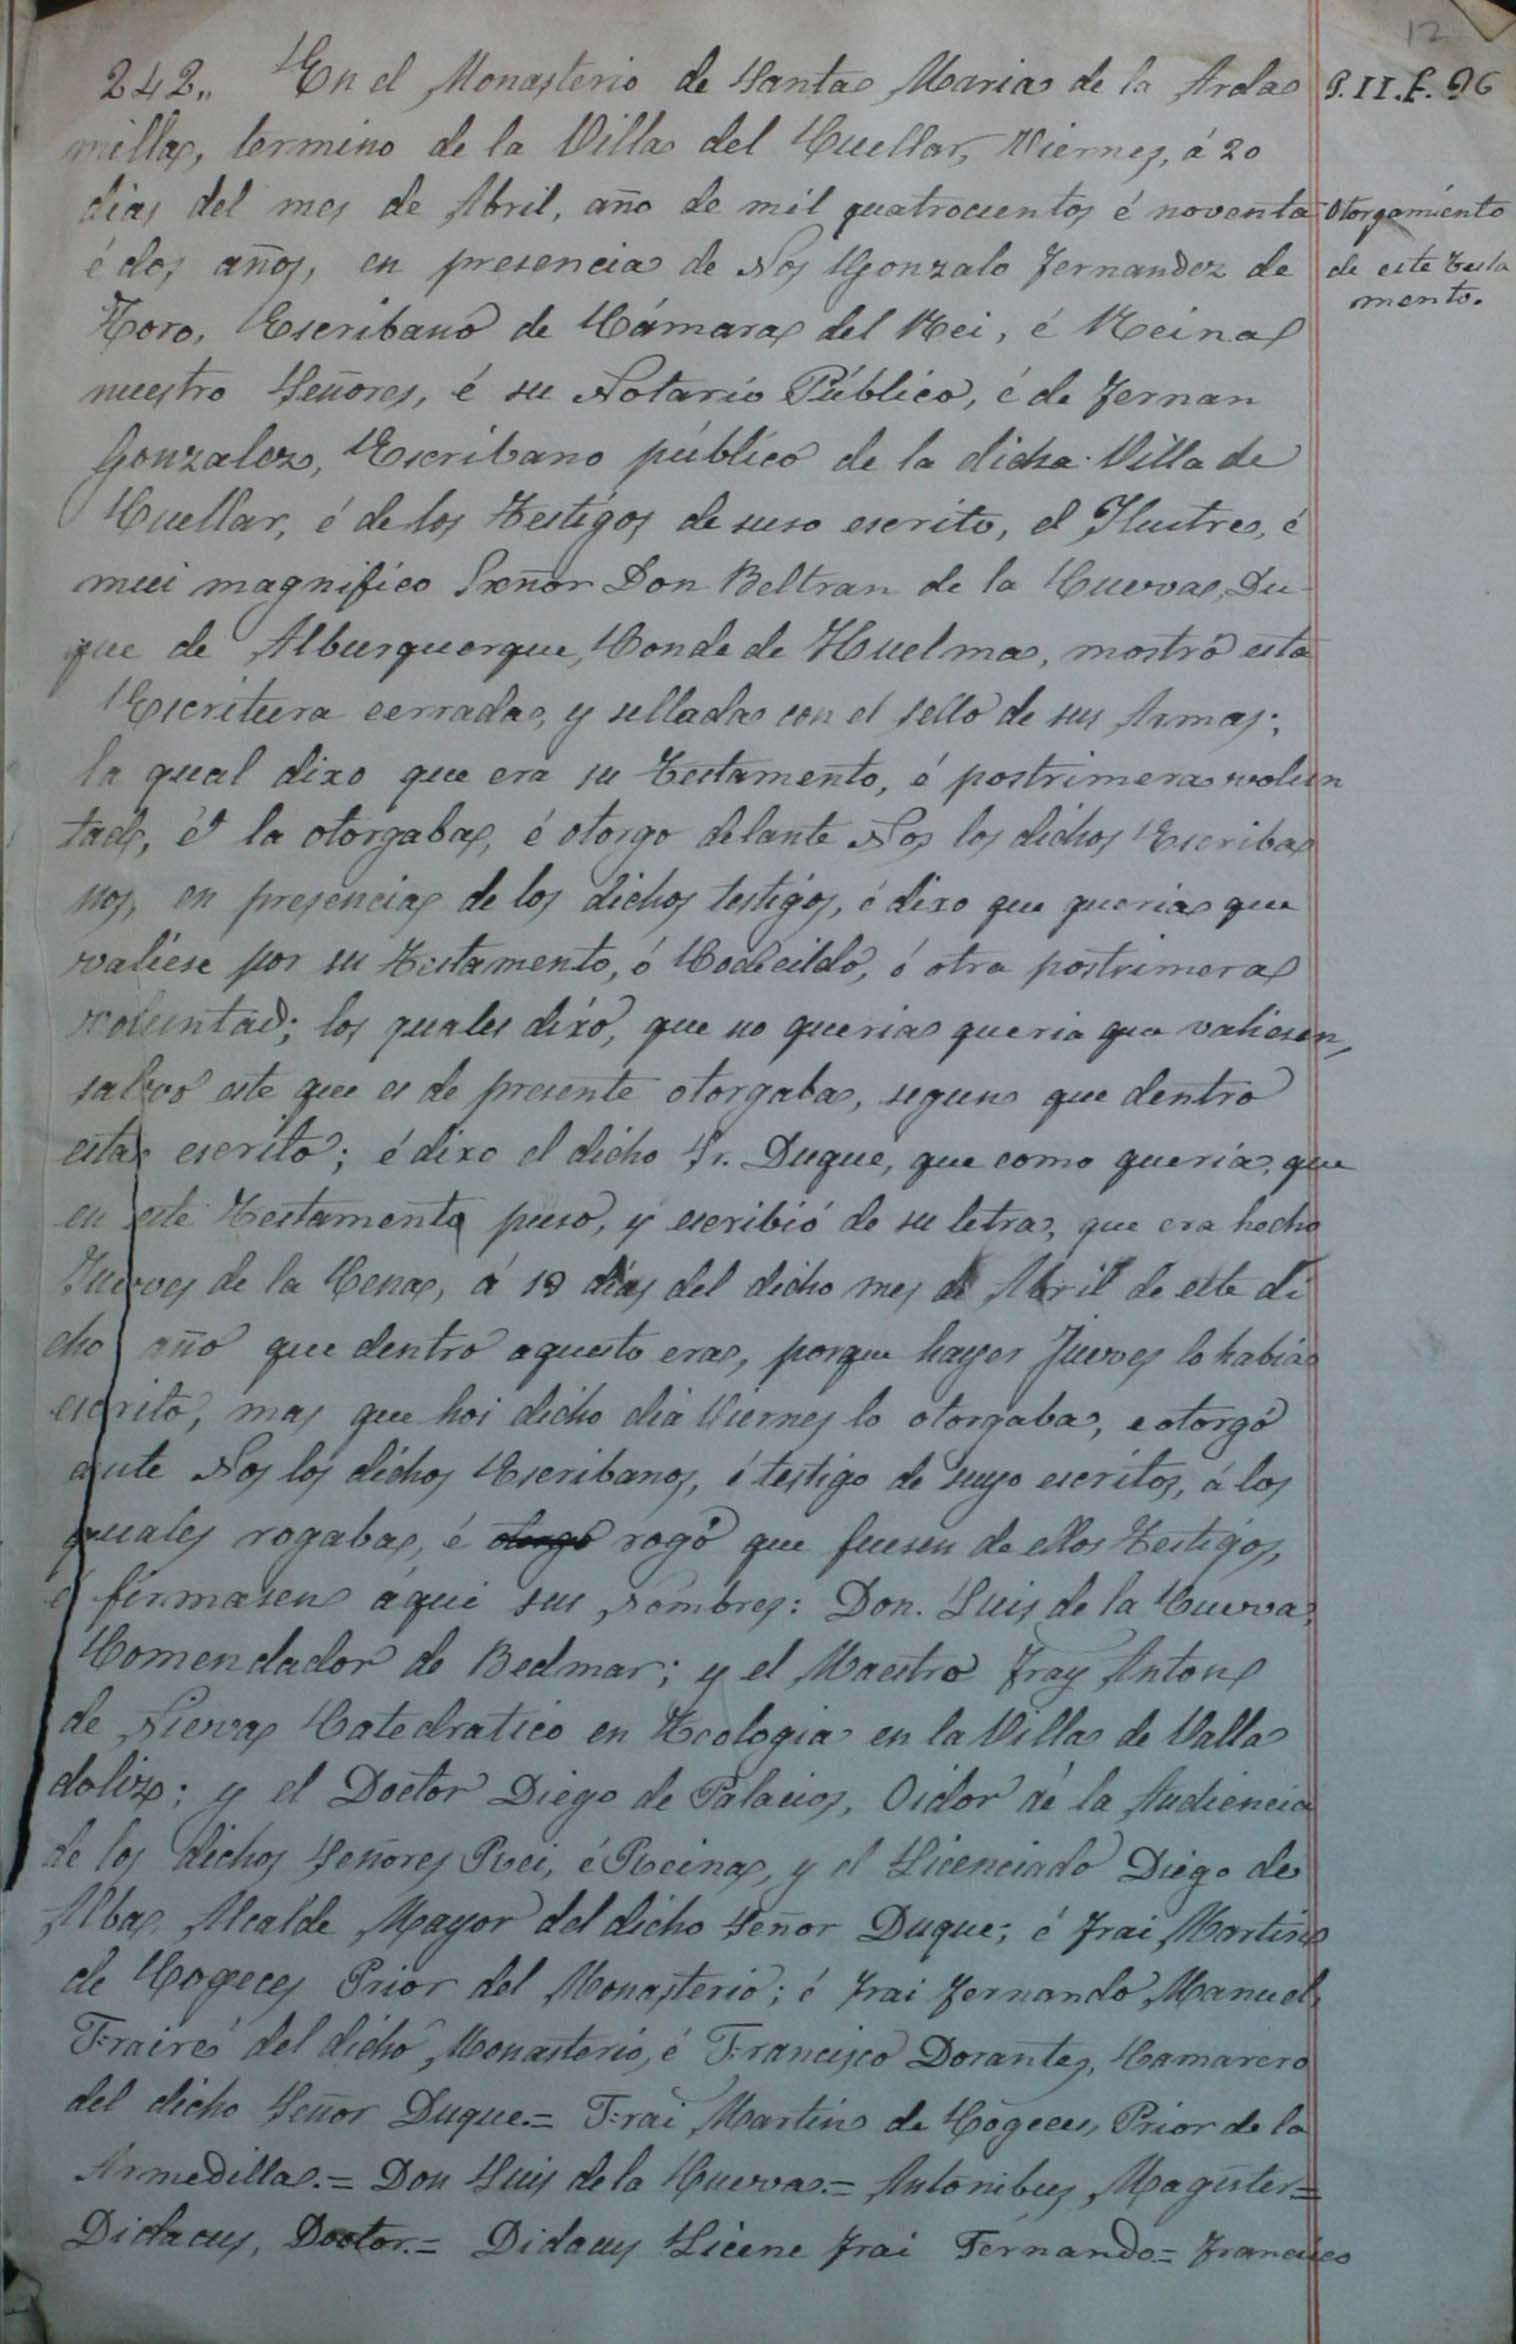 12
242., En el Monasterio de Santa Maria de la Arda
P. II. f. 96
milla, termino de la Villa del Cuellar, Viernes, á 20
dias del mes de Abril, año de mil quatrocientos é noventa
Otorgamiento
é dos años, en presencia de Nos Gonzalo Fernandez de
de este Testa
mento.
Toro, Escribano de Cámara del Rei, é Reina
nuestro Señores, é su Notario Público, é de Fernan
Gonzalez, Escribano público de la dicha Villa de
Cuellar, é de los Testigos de suso escrito, el Ilustre, é
mui magnifico Señor Don Beltran de la Cueva, Du-
que de Alburquerque, Conde de Huelma, mostró esta
Escritura cerrada, y sellada con el sello de sus Armas;
la qual dixo que era su Testamento, é postrimera volun
tad, é la otorgaba, é otorgo delante Nos los dichos Escriba
nos, en presencia de los dichos testigos, é dixo que queria que
valiese por su Testamento, ó Codecildo, ó otra postrimera
voluntad; los quales dixo, que no queria queria que valiesen,
salvo este que es de presente otorgaba, segun que dentro
esta escrito; é dixo el dicho Sr. Duque, que como queria, que
en este Testamento puso, y escribió de su letra, que era hecho
Jueves de la Cena, á 19 dias del dicho mes de Abril de este di
cho año que dentro aquesto era, porque hayer Jueves lo habia
escrito, mas que hoi dicho dia Viernes lo otorgaba, e otorgó
ante Nos los dichos Escribanos, é testigo de suyo escritos, á los
quales rogaba, é otorgo rogó que fuesen de ellos Testigos,
é firmasen aqui sus nombres: Don. Luis de la Cueva,
Comendador de Bedmar; y el Maestro Fray Anton
de Nieva Catedratico en Teologia en la Villa de Valla
doliz; y el Doctor Diego de Palacios, Oidor de la Audiencia
de los dichos Señores Rei, é Reina, y el Licenciado Diego de
Alba, Alcalde Mayor del dicho Señor Duque; é Frai Martin
de Cogeces Prior del Monasterio; é Frai Fernando Manuel,
Fraire del dicho Monasterio, é Francisco Dorantes, Camarero
del dicho Señor Duque.= Frai Martin de Cogeces, Prior de la
Armedilla.= Don Luis de la Cueva.= Antonibus, Magister=
Didacus, Doctor.= Didacus Licene Frai Fernando= Francisco